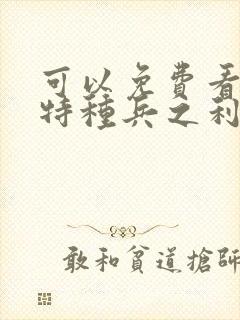 可以免費看
特種兵之利
敢和貧道搶師